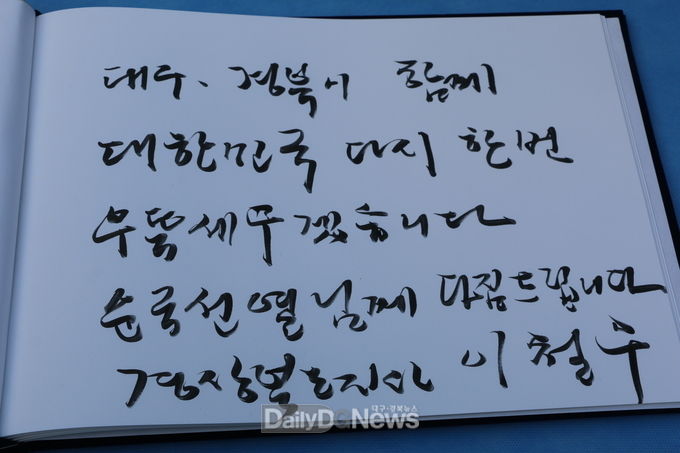 대구、경북이 함께
대한민국 다시 한번
우뚝세우겠습니다
순국선열님께 다짐드립니다
경상북도지사 이철우
대구·경북뉴스
DailyDgNews